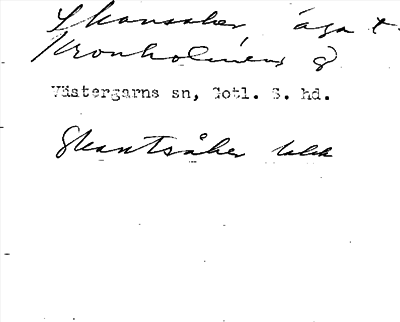 Skansaker, äga t.
Kronholmens g
Västergarns sn, Gotl. S. hd.
Skantsåker